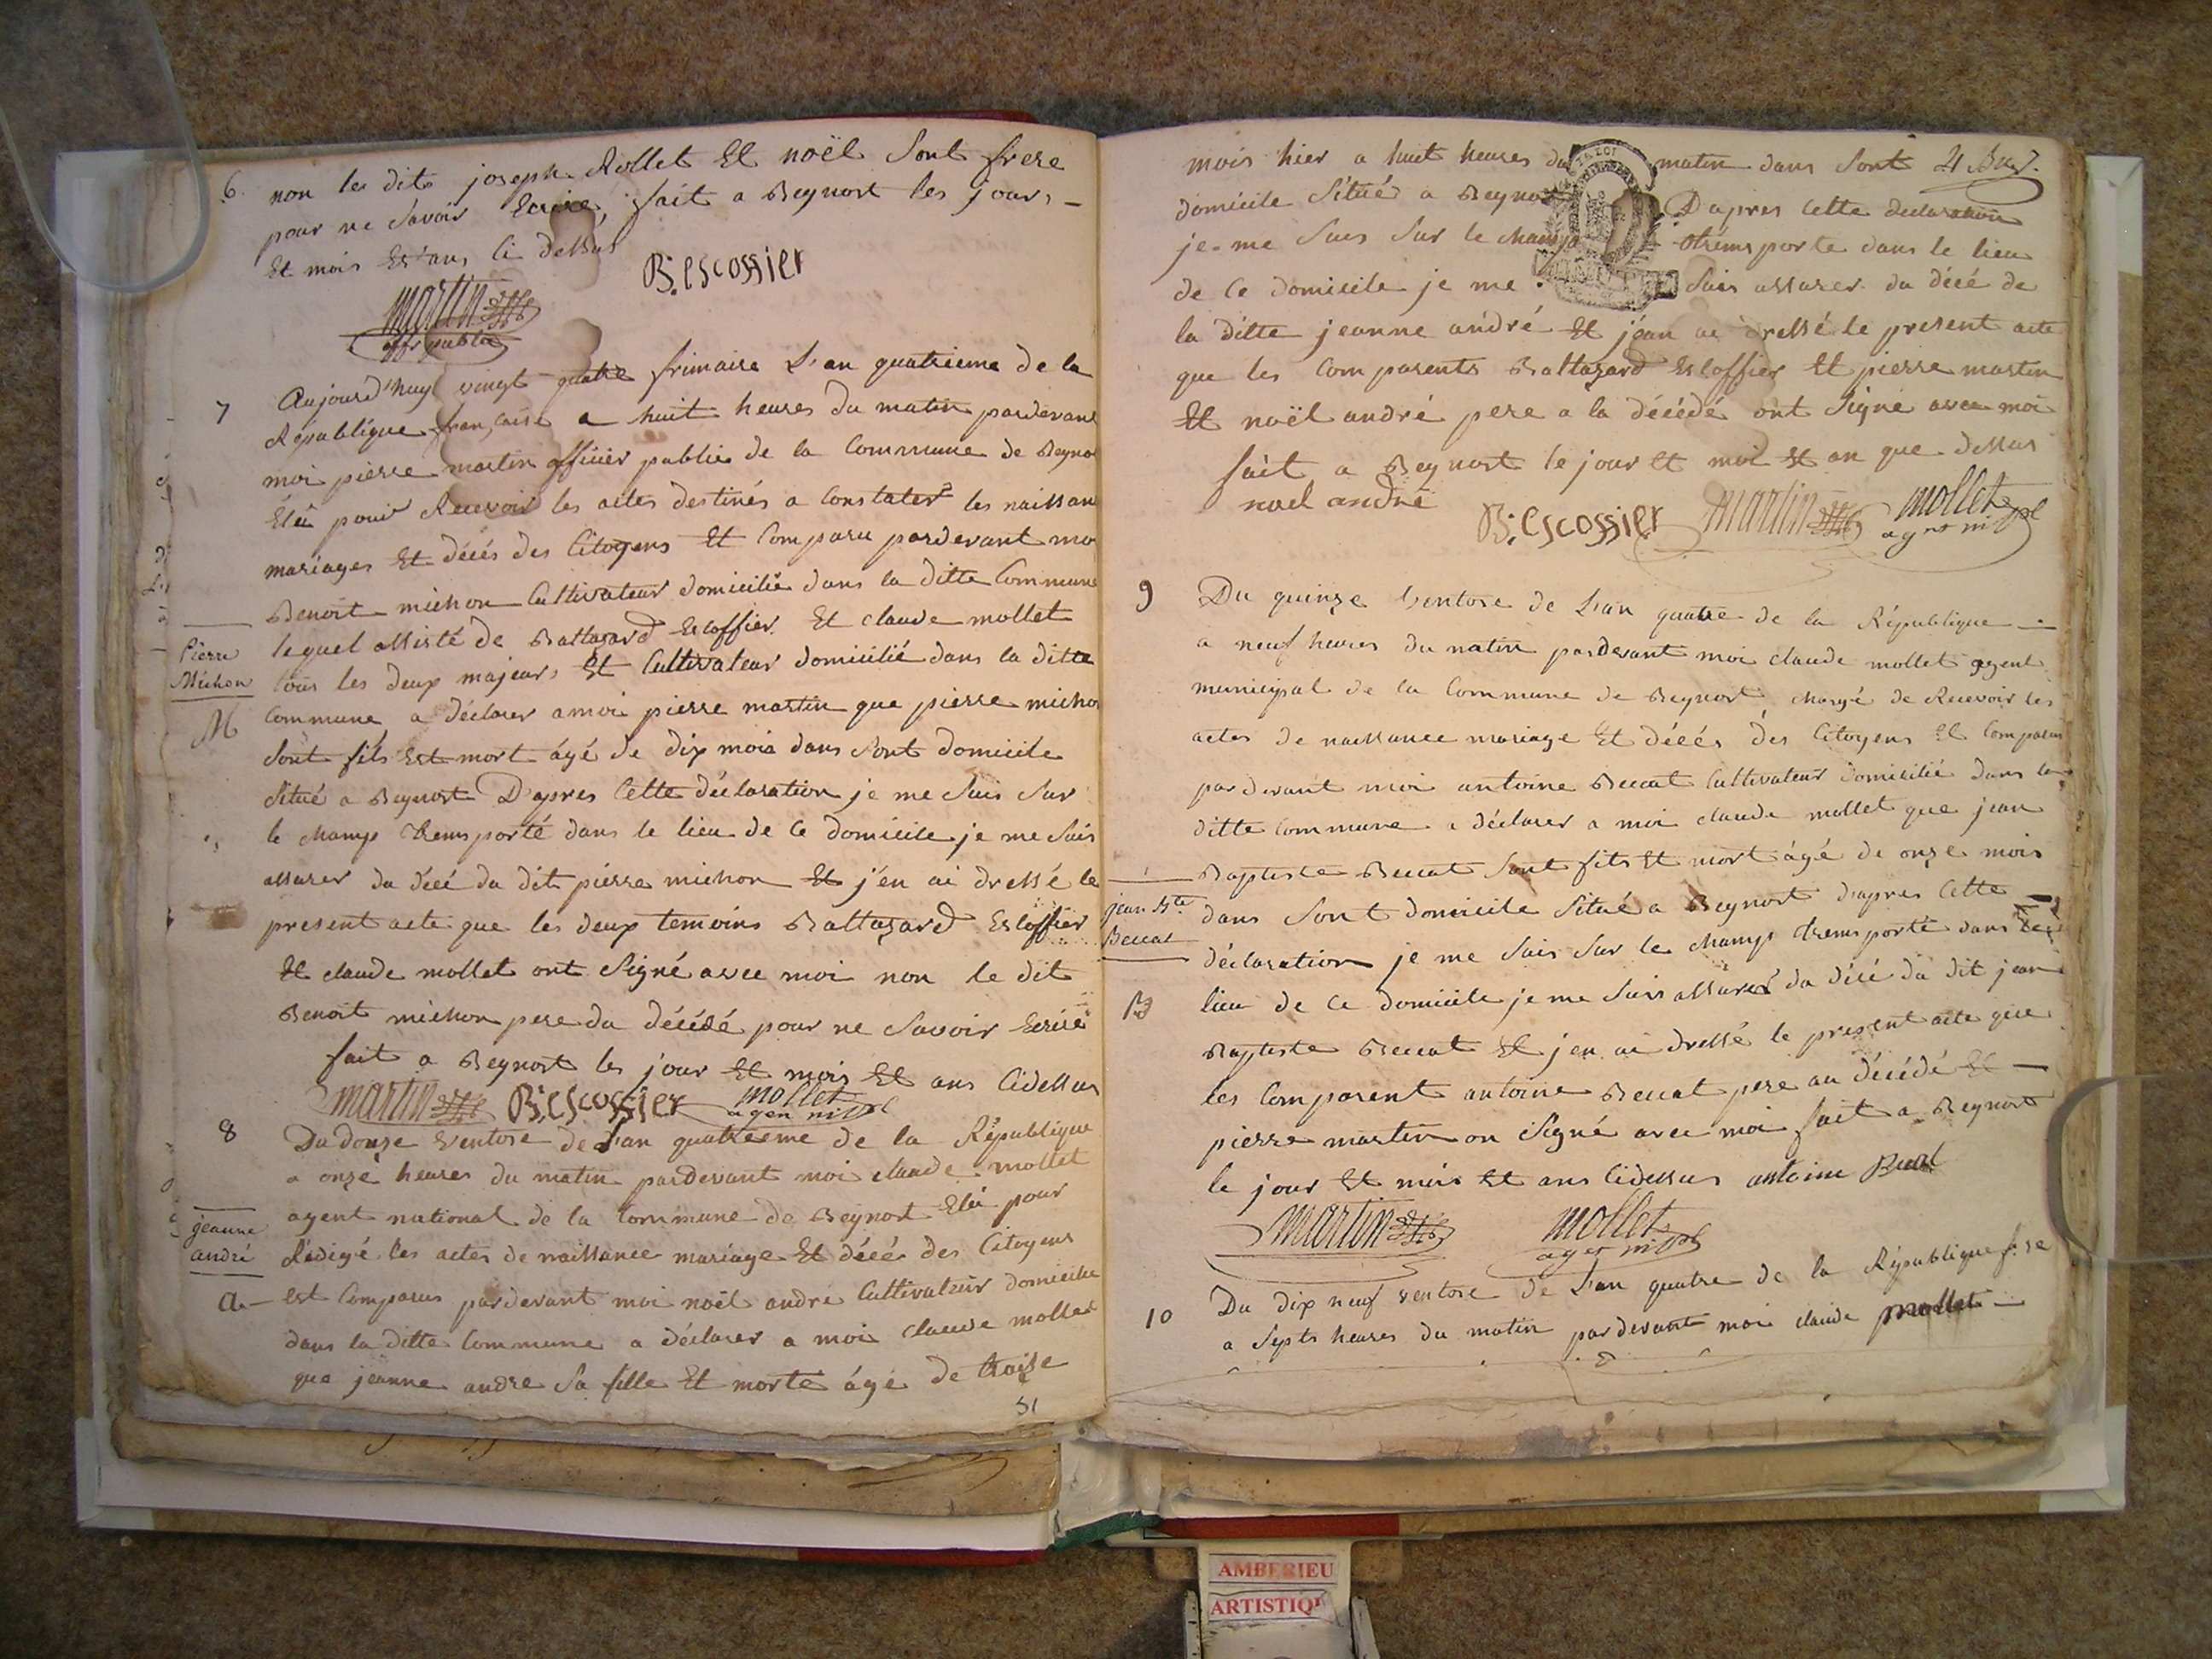 6. non les dits joseph Rollet Et noël sont frere
pour ne savoir Ecrire, fait a Beynost les jours
Et mois Et ans ci dessus
B: escossier
martin
offr public
7 Aujourd'huy vingt quatre frimaire L'an quatrieme de la
République française a huit heures du matin pardevant
moi pierre martin officier public de la Commune de Beyno
Élu pour Recevoir les actes destinés a Constater les naissan
mariages Et décés des Citoyens Et Comparu pardevant mo
Benoit michon Cultivateur domicilié dans la ditte Commune
lequel assisté de Baltazard Escoffier Et claude mollet
tous les deux majeurs Et Cultivateur domicilié dans la ditte
Pierre
Michon
M
Commune a déclarer a moi pierre martin que pierre michon
sont fils Est mort ágé de dix mois dans sont domicile
situé a Beynost D'apres Cette déclaration je me suis sur
le champ transporté dans le lieu de Ce domicile je me suis
assurer du décé du dit pierre michon Et j'en ai dressé le
present acte que les deux temoins Baltazard Escoffier
Et claude mollet ont signé avec moi non le dit
Benoit michon pere du décédé pour ne savoir Ecrire
fait a Beynost les jour Et mois Et ans Cidessus
martin B: escossier mollet
agen mipl
8 Du douze Ventose de L'an quatrieme de la République
a onze heures du matin pardevant moi claude mollet
agent national de la Commune de Beynost Elu pour
jeanne
andré
a
Rédigé les actes de naissance mariage Et décé des Citoyens
Est Comparus pardevant moi noël andre Cultivateur domicilie
dans la ditte Commune a déclarer a moi claude mollet
que jeanne andre sa fille Et morte ágé de
51
mois hier a huit heures du matin dans sont
domicile situé a Beynost D'apres Cette declaration
je me suis sur le champ transporte dans le lieu
de Ce domicile je me suis assurer du décé de
la ditte jeanne andré Et jean ai dressé le present acte
que les Comparents Baltazard Escoffier Et pierre martin
Et noël andré pere a la décédé ont signé avec moi
fait a Beynost le jour Et moi Et an que dessus
noel andré B: escossier martin mollet
agnt mipl
9 Du quinze Ventose de L'an quatre de la République
a neuf heures du matin pardevant moi claude mollet agent
municipal de la Commune de Beynost chargé de Recevoir les
actes de naissance mariage Et décés des Citoyens Et Comparus
pardevant moi antoine Beccat Cultivateur domicilié dans la
ditte Commune a déclarer a moi claude mollet que jean
Baptiste Beccat sont fils Et mort ágé de onze mois
jean Bte
Beccat
B
dans sont domicile situé a Beynost d'apres Cette
déclaration je me suis sur le champ transporté dans le
lieu de Ce domicile je me suis assurer du décé du dit jean
Baptiste Beccat Et jen ai dressé le present acte que
les Comparent antoine Beccat pere au décédé Et
pierre martin on signé avec moi fait a Beynost
le jour Et mois Et ans Cidessus antoine
martin mollet
10 Du dix neuf ventose de L'an quatre de la République
a septs heures du matin pardevant moi claude mollet
AMBERIEU
ARTISTIQ